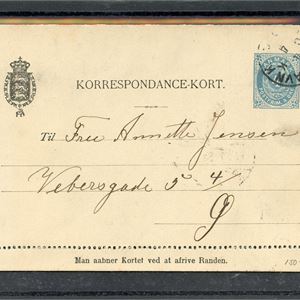 KORRESPONDANCE-KORT.
Til Frue Annette Jensen
Vebersgade 5 4/
Ø
Man aabner Kortet ved at afrive Randen.